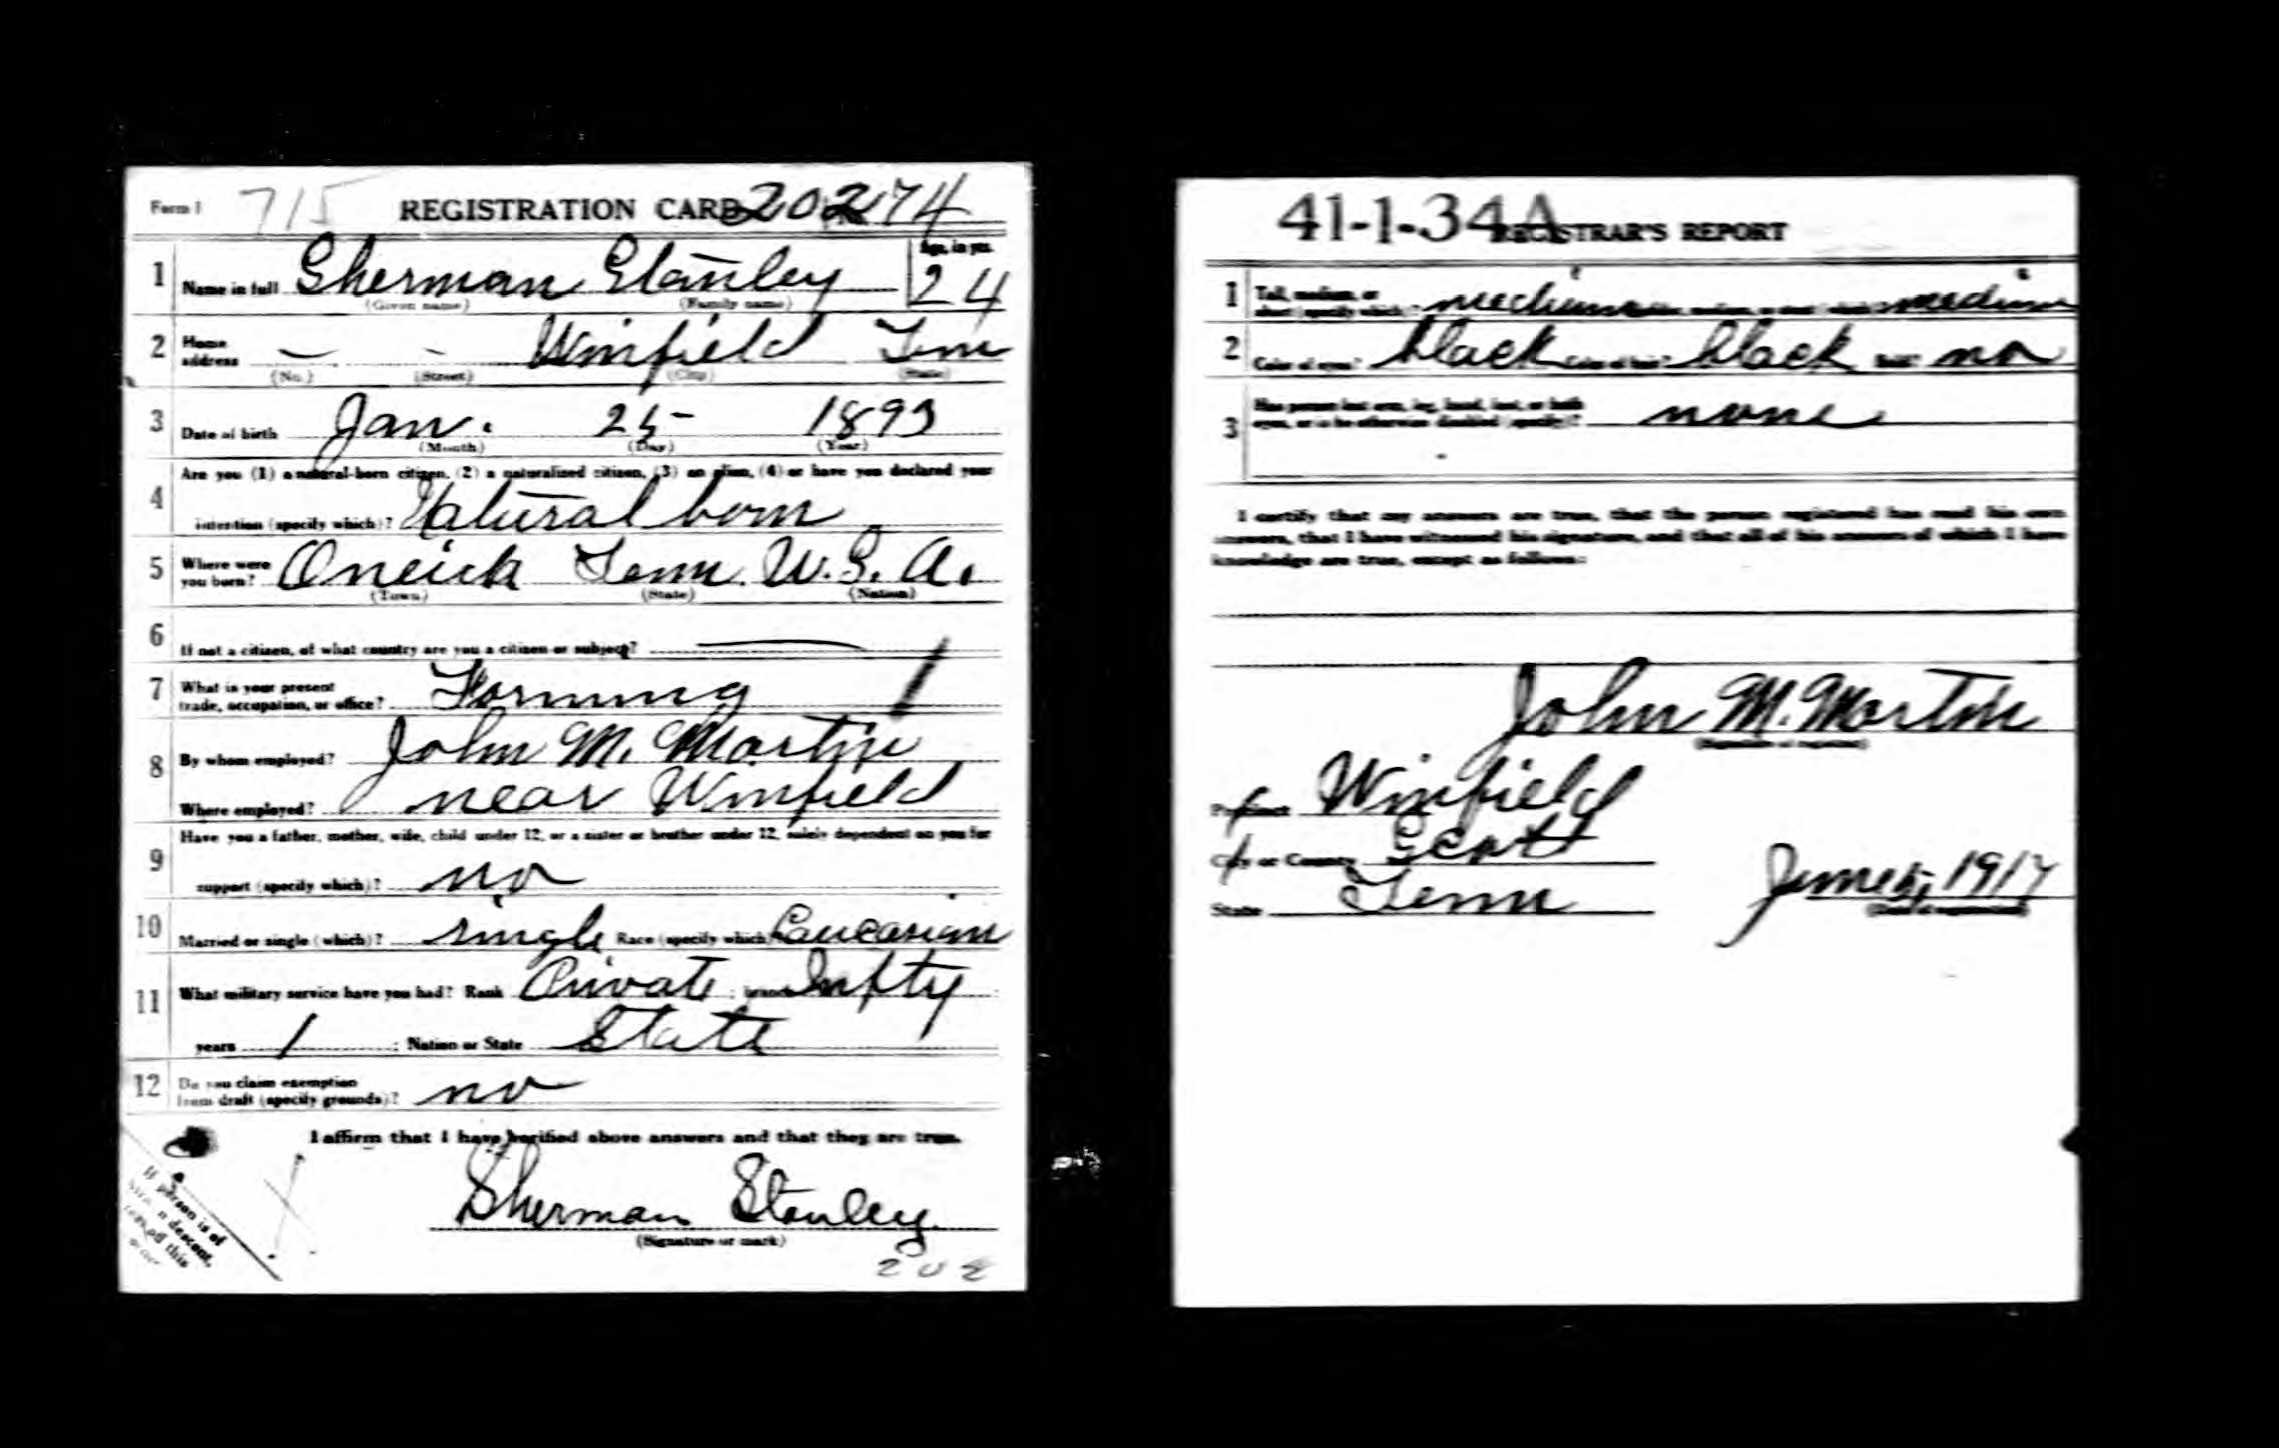 Form 1 715 REGISTRATION CARD 202 74
1 Name in full Sherman Stanley Age, in yrs. 24
(Given name) (Family name)
2 Home address — — Winfield Tenn
(No.) (Street) (City) (State)
3 Date of birth Jan. 25 1893
(Month) (Day) (Year)
4 Are you (1) a natural-born citizen, (2) a naturalized citizen, (3) an alien, (4) or have you declared your
intention (specify which)? Natural born
5 Where were you born? Oneida Tenn. U.S.A.
(Town) (State) (Nation)
6 If not a citizen, of what country are you a citizen or subject?
7 What is your present trade, occupation, or office? Farming
8 By whom employed? John M. Martin
Where employed? near Winfield
9 Have you a father, mother, wife, child under 12, or a sister or brother under 12, solely dependent on you for
support (specify which)? no
10 Married or single (which)? single Race (specify which)? Caucasian
11 What military service have you had? Rank Private ; branch Infty
years 1 ; Nation or State State
12 Do you claim exemption from draft (specify grounds)? no
I affirm that I have verified above answers and that they are true.
Sherman Stanley
(Signature or mark)
If person is of
descent,
off this
202
41-1-34A REGISTRAR'S REPORT
1 Tall, medium, or short (specify which)? medium medium
2 Color of eyes? black Color of hair? black Bald? no
3 Has person lost arm, leg, hand, foot, or both
eyes, or is he otherwise disabled (specify)? none
I certify that my answers are true, that the person registered has read his own
answers, that I have witnessed his signature, and that all of his answers of which I have
knowledge are true, except as follows:
John M. Martin
(Signature of registrar)
Precinct Winfield
City or County Scott
State Tenn June 5, 1917
(Date of registration)